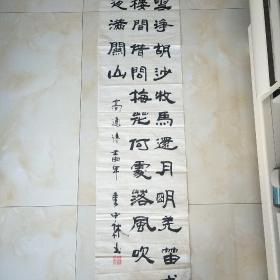 雪淨胡沙牧馬還月明羌笛戍
樓間借問梅花何處落風吹
夜滿關山
高適詩 年 書